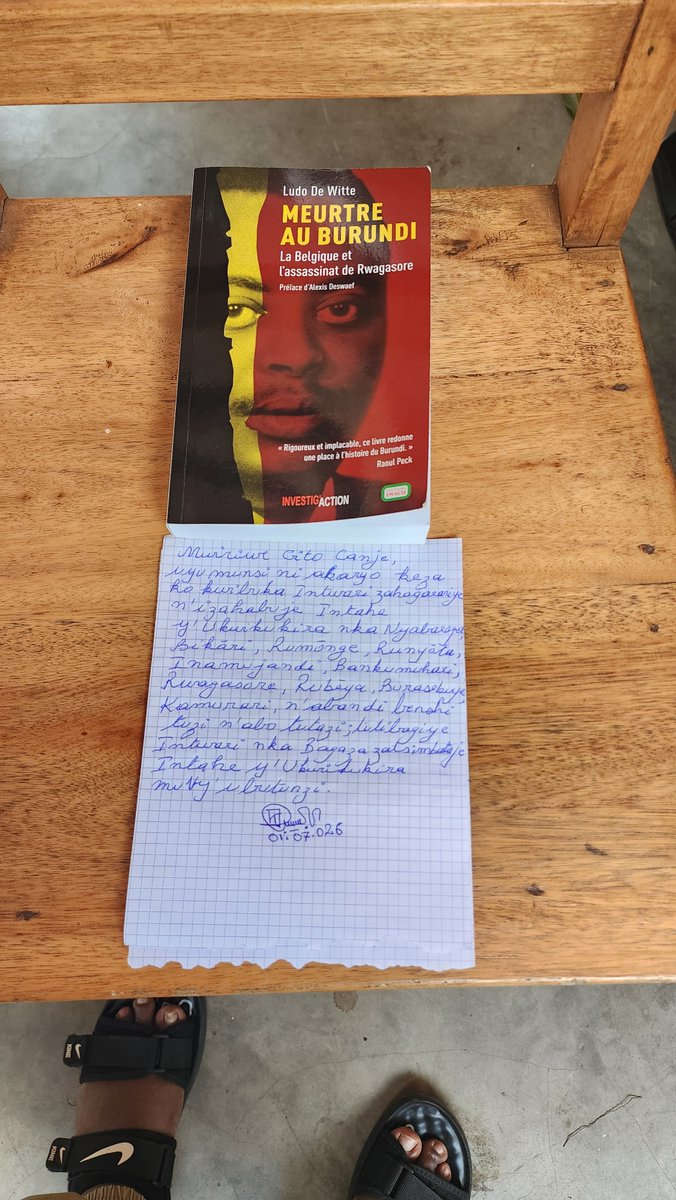 Ludo De Witte
MEURTRE
AU BURUNDI
La Belgique et
l'assassinat de Rwagasore
Préface d'Alexis Deswaef
« Rigoureux et implacable, ce livre redonne
une place à l'histoire du Burundi. »
Raoul Peck
INVESTIG'ACTION
Muririwe Gito Canje,
uyu munsi ni akaryo keza
ko kwibuka Intwari zahagarariye
n'izahabuje Intahe
y'Ukwikukira nka Nyabareza,
Bikari, Rumonge, Runyota,
Inamujandi, Bankumuhari,
Rwagasore, Rubeya, Burasebuye,
Kamurari, n'abandi benshi
tuzi n'abo tutazi; tutibagiye
Intwari nka Bagaza zatsimbataje
Intahe y'Ukwikukira
mu vy'ubutunzi.
01.07.026